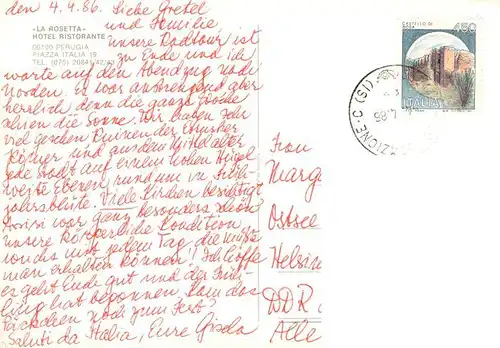 den 4.4.86. Liebe Gretel
und Familie
«LA ROSETTA»
HOTEL RISTORANTE
06100 PERUGIA
PIAZZA ITALIA 19
TEL. (075) 20841/42/43
unsere Radtour ist
zu Ende und ich
warte auf den Abendzug nach
Norden. Es war anstrengend aber
herrlich denn die ganze Woche
schien die Sonne. Wir haben sehr
viel gesehen Ruinen der Etrusker
Römer und aus dem Mittelalter
jede Stadt auf einem hohen Hügel
weite Ebenen rund um in Früh-
jahrsblüte. Viele Kirchen besichtigt
Assisi war ganz besonders schön
unsere körperliche Kondition
wuchs mit jedem Tag, die müßte
man erhalten können! Ich hoffe
es geht Ende gut und der Früh-
ling hat begonnen. Kam das
Päckchen noch zum Fest?
Saluti da Italia, Eure Gisela
CASTELLO DI
450
ITALIA
AZIONE-C (SI)
Frau
Marg
Ostsee
Helsin
DDR
Alle